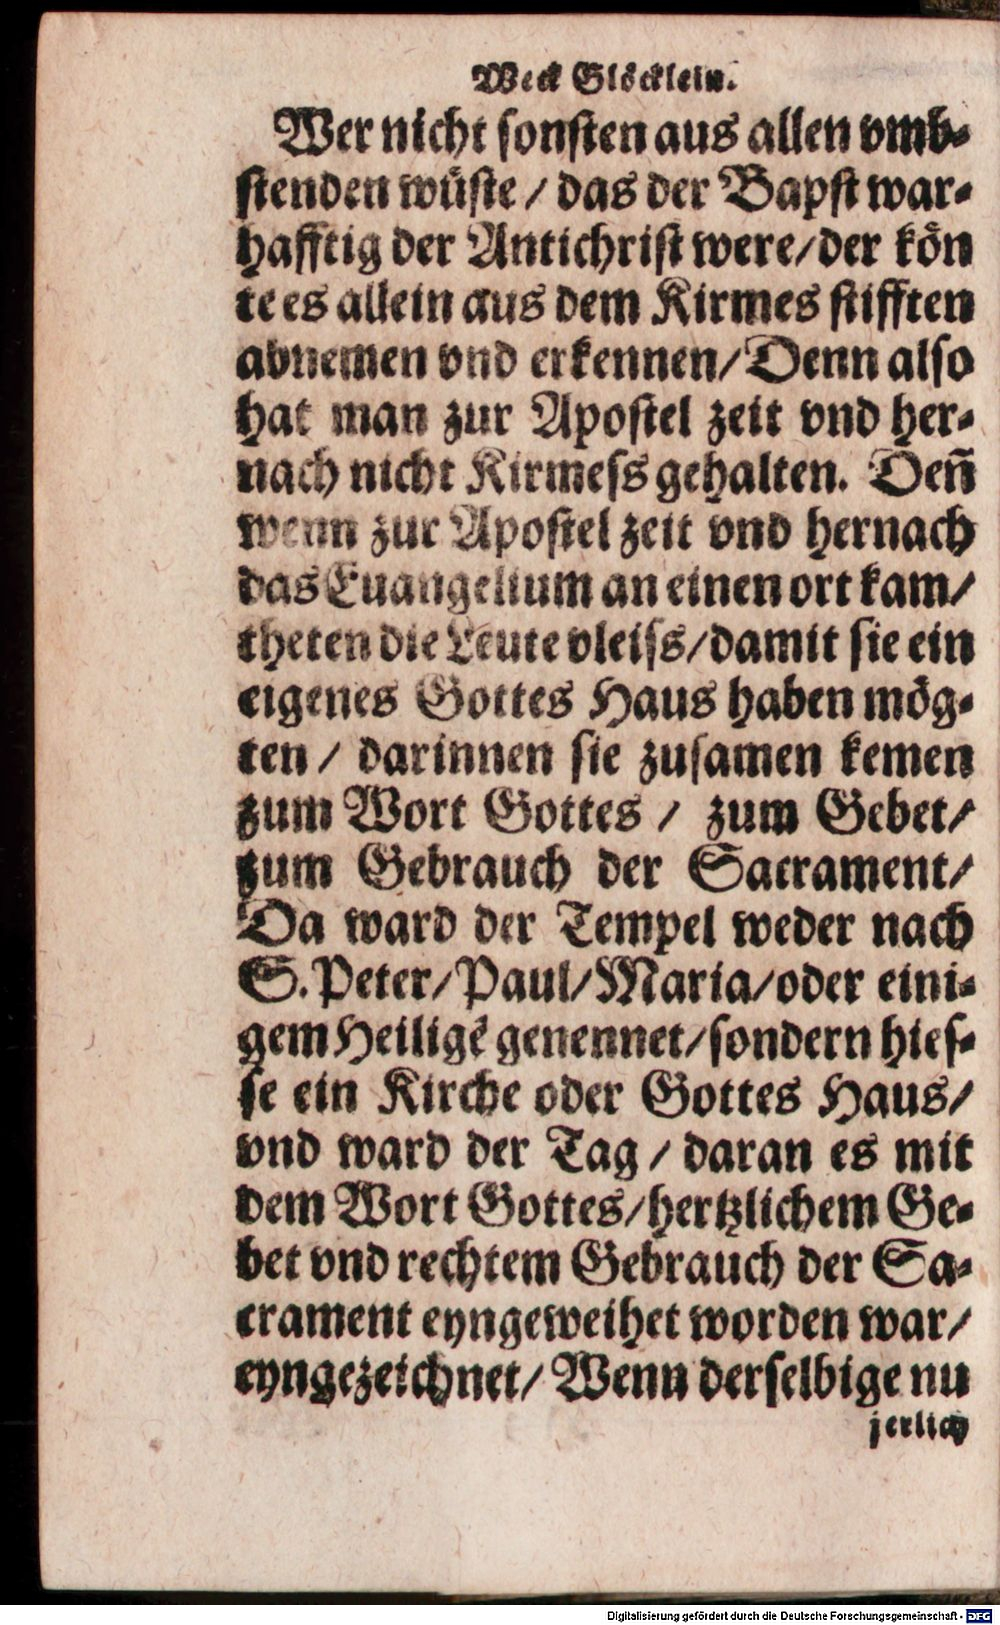 Weck Glöcklein.
Wer nicht sonsten aus allen vmb-
stenden wüste / das der Bapst war-
hafftig der Antichrist were/der kön
te es allein aus dem Kirmes stifften
abnemen vnd erkennen/Denn also
hat man zur Apostel zeit vnd her-
nach nicht Kirmess gehalten. Deñ
wenn zur Apostel zeit vnd hernach
das Euangelium an einen ort kam/
theten die Leute vleiss/damit sie ein
eigenes Gottes Haus haben mög-
ten / darinnen sie zusamen kemen
zum Wort Gottes / zum Gebet/
zum Gebrauch der Sacrament/
Da ward der Tempel weder nach
S. Peter/Paul/Maria/oder eini-
gem Heiligẽ genennet/sondern hies-
se ein Kirche oder Gottes Haus/
vnd ward der Tag / daran es mit
dem Wort Gottes/hertzlichem Ge-
bet vnd rechtem Gebrauch der Sa-
crament eyngeweihet worden war/
eyngezeichnet/ Wenn derselbige nu
jerlich
Digitalisierung gefördert durch die Deutsche Forschungsgemeinschaft - DFG